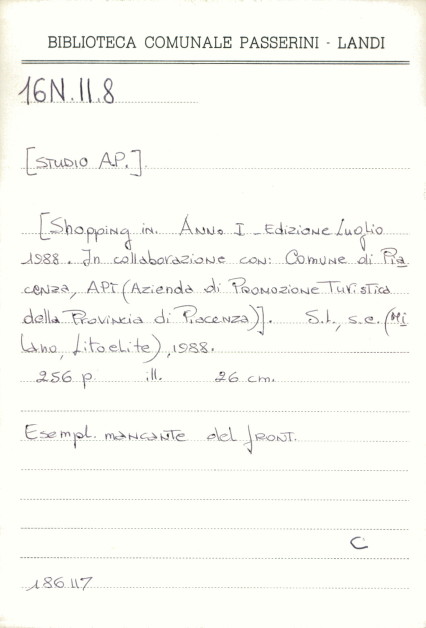 BIBLIOTECA COMUNALE PASSERINI - LANDI
16N.II.8
[STUDIO A.P.]
[Shopping in. Anno I - Edizione Luglio
1988. In collaborazione con: Comune di Pia
cenza, APT (Azienda di Promozione Turistica
della Provincia di Piacenza)]. S.l., s.e. (Mi
lano, Litoelite), 1988.
256 p. ill. 26 cm.
Esempl. mancante del front.
C
186117